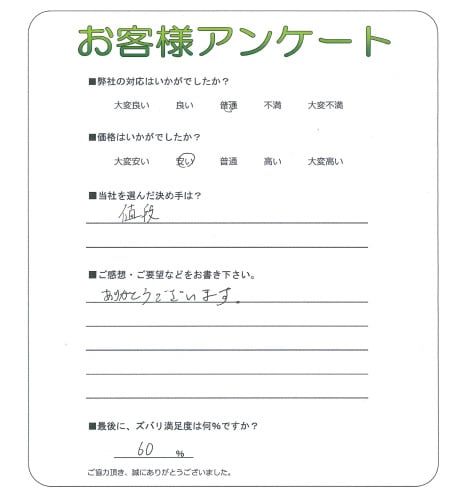 お客様アンケート
■弊社の対応はいかがでしたか？
大変良い　良い　普通　不満　大変不満
■価格はいかがでしたか？
大変安い　安い　普通　高い　大変高い
■当社を選んだ決め手は？
値段
■ご感想・ご要望などをお書き下さい。
ありがとうございます。
■最後に、ズバリ満足度は何%ですか？
60 %
ご協力頂き、誠にありがとうございました。